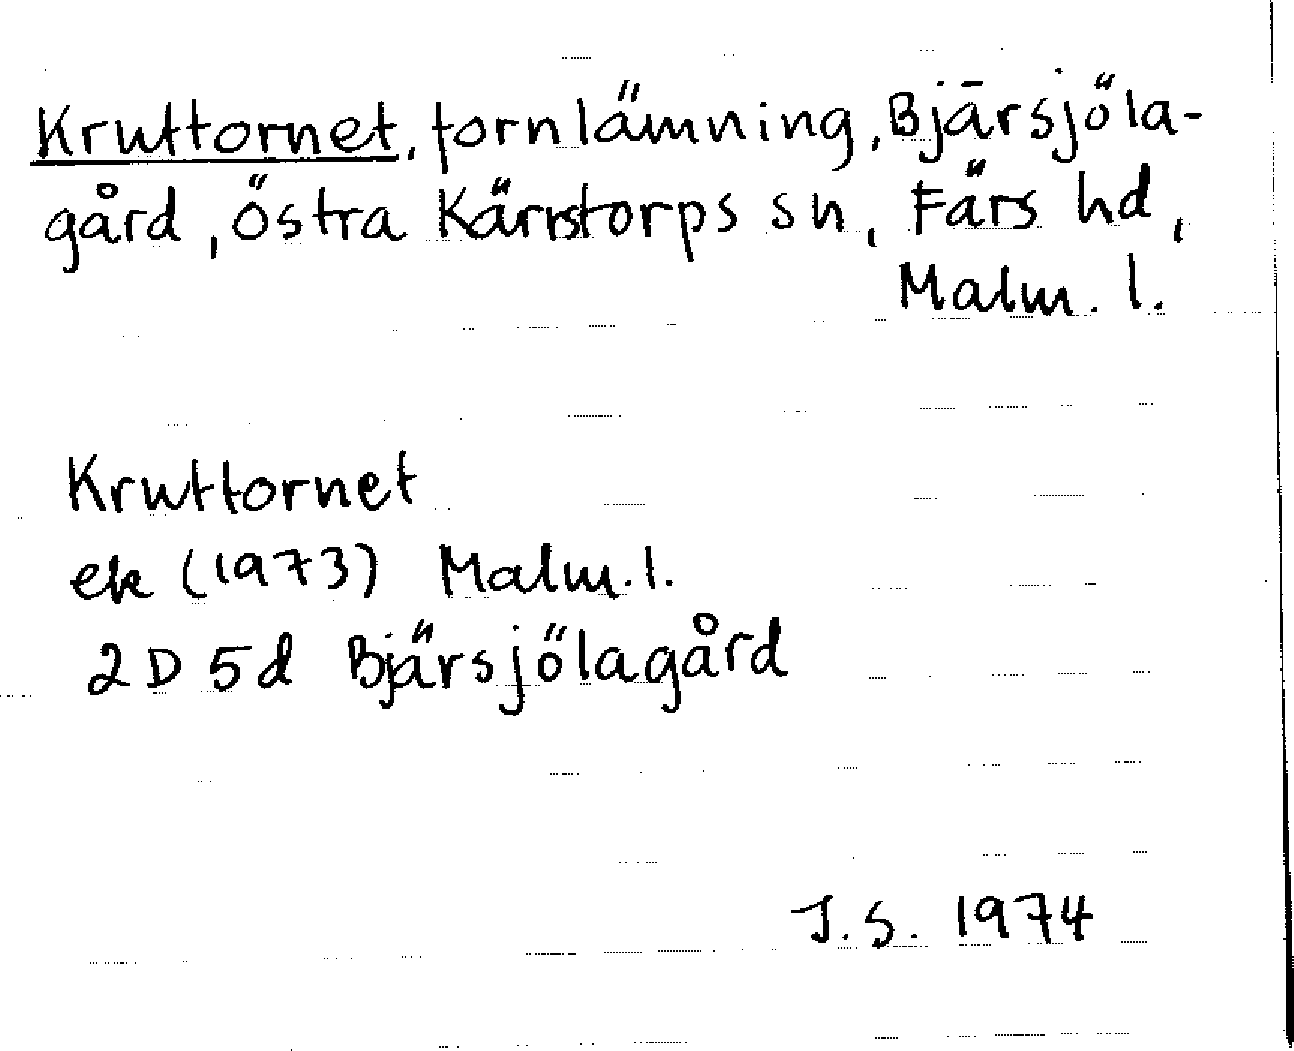 Kruttornet, fornlämning, Bjärsjöla-
gård, Östra Kärrstorps sn, Färs hd,
Malm. l.
Kruttornet
ek (1973) Malm. l.
2D 5d Bjärsjölagård
J.S. 1974